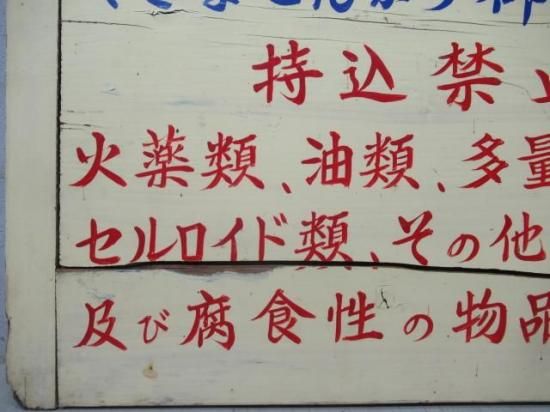 持込禁止
火薬類、油類、多量
セルロイド類、その他
及び腐食性の物品